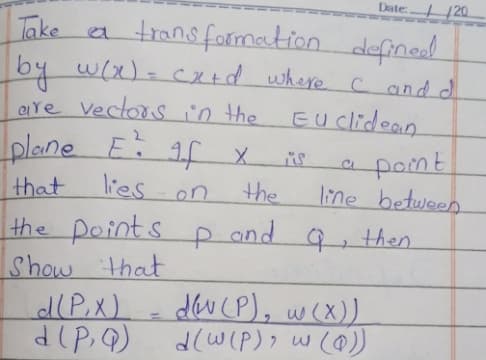 Date: / /20
Take a transformation defined
by w(x) = cx+d where c and d
are vectors in the Euclidean
plane E². If X is a point
that lies on the line between
the points p and Q, then
Show that
d(P,X) / d(P,Q) = d(W(P), w(X)) / d(w(P), w(Q))